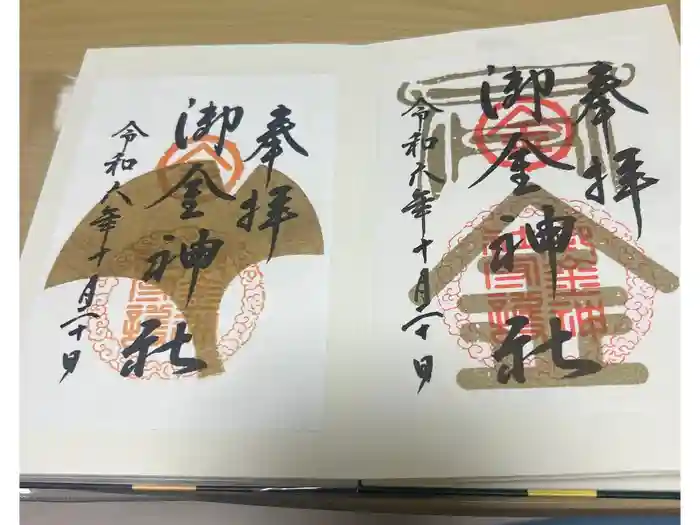 奉拝
御金神社
令和六年十月二十日
奉拝
御金神社
令和六年十月二十日